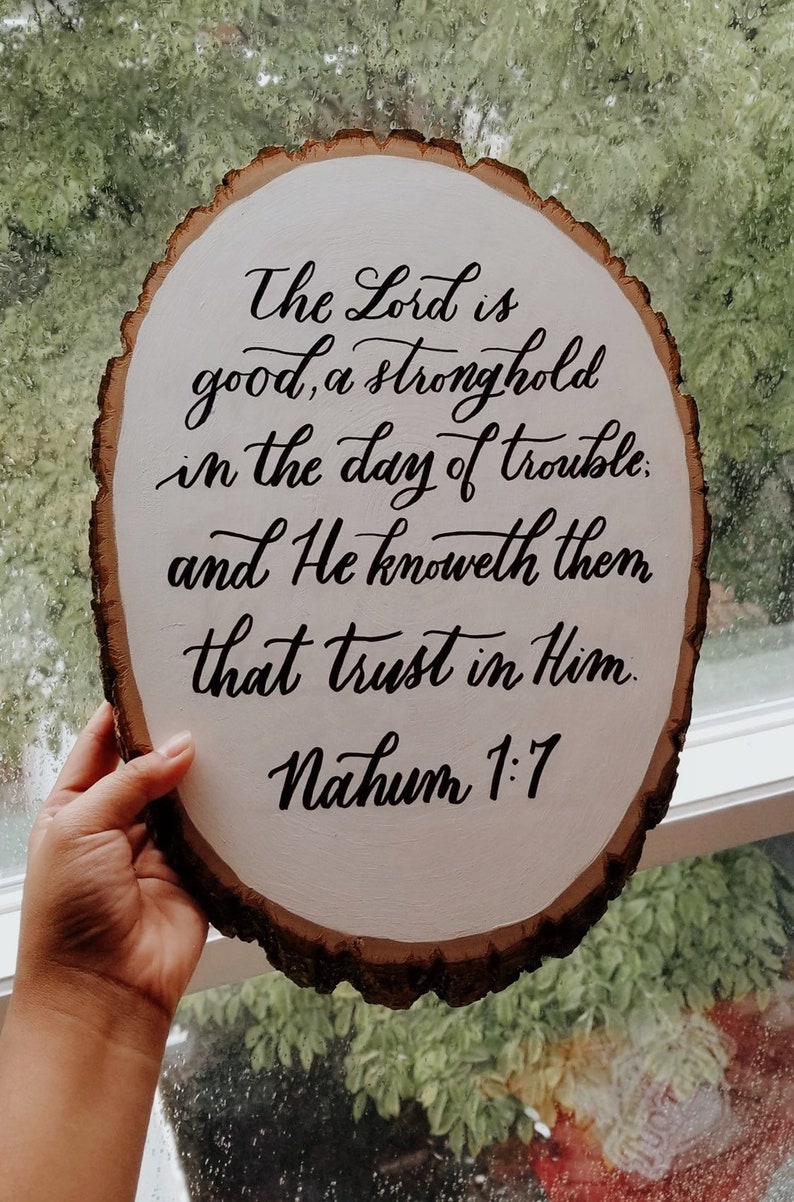 The Lord is
good, a stronghold
in the day of trouble;
and He knoweth them
that trust in Him.
Nahum 1:7